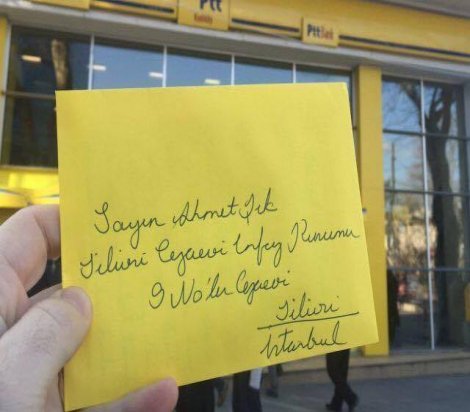 Ptt
PttBank
Sayın Ahmet Şık
Silivri Cezaevi İnfaz Kurumu
9 No'lu Cezaevi
Silivri
İstanbul